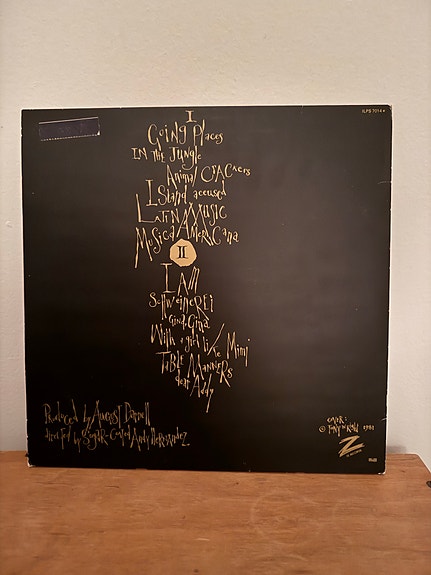 ILPS 7014
I
Going Places
IN THE JUNGLE
Animal CRACKers
Island accused
LATIN MUSIC
Musica AmeRicana
II
I AM
SchweineREi
Gina, Gina
With a girl like Mimi
TABLE MANNeRS
dear Addy
Produced by August Darnell
directed by Sugar-Coated Andy Hernandez
cover:
© Tony Wright 1981
Z
ZE RECORDS